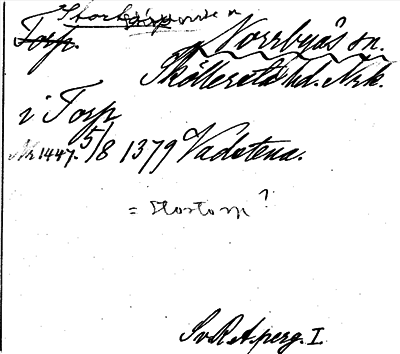 Torp. Norrbyås sn.
Sköllersta hd. Nrk.
i Torp
Nr 1447. 5/8 1379 Vadstena.
= Stortorp?
Sv. R. A. perg. I.